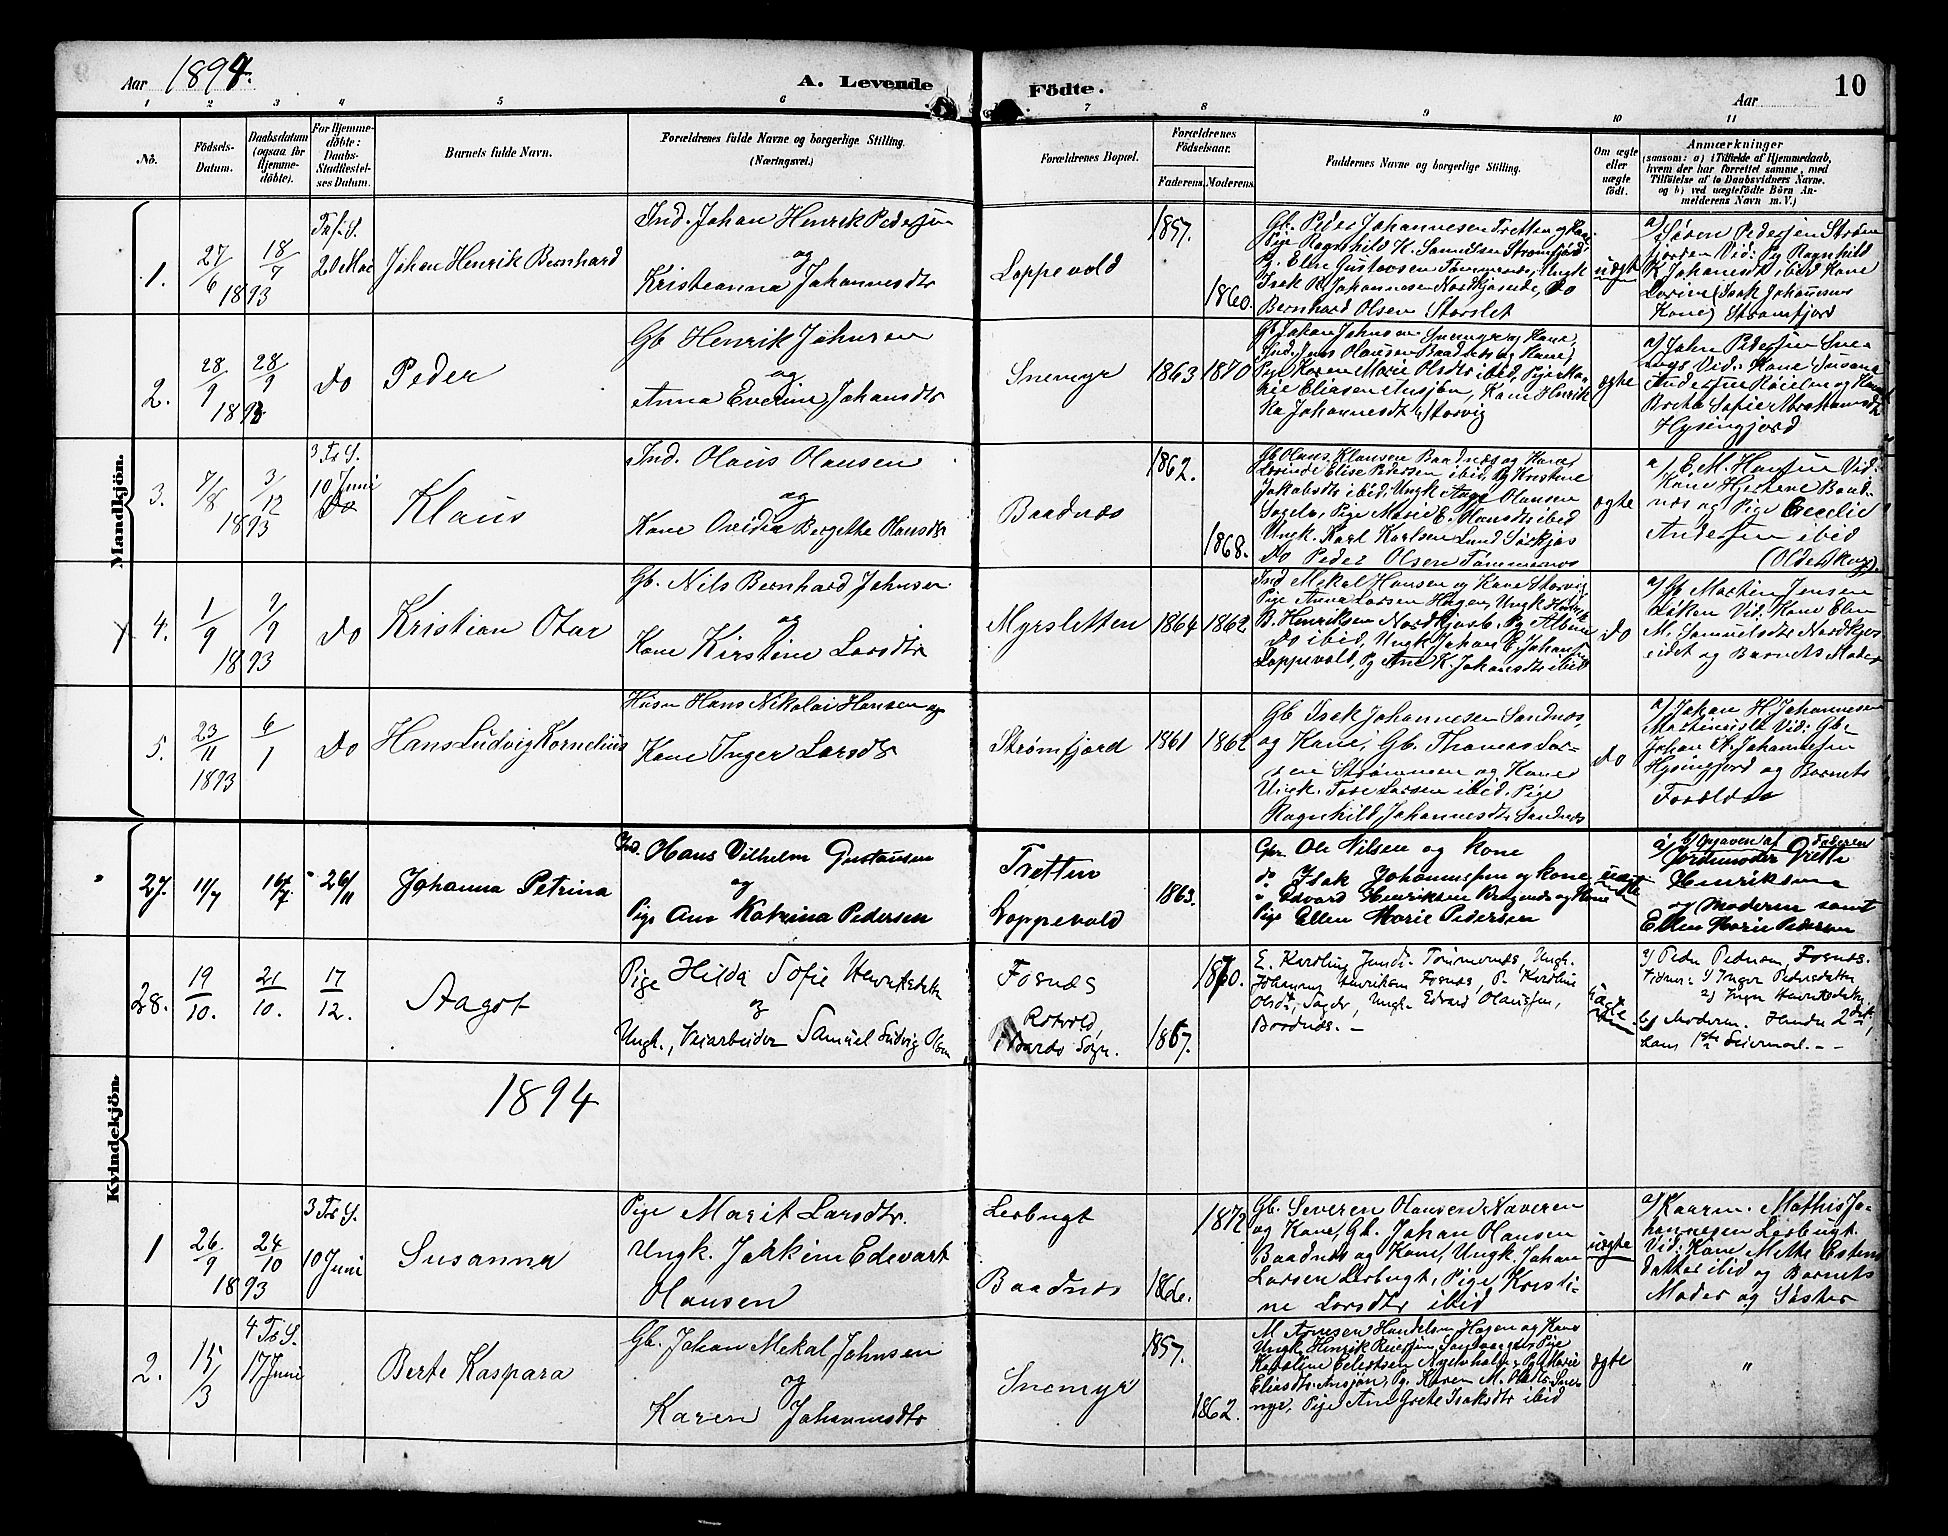 Aar 1894.
A. Levende
Födte.
Aar
10
1 2 3 4 5 6 7 8 9 10 11
No.
Födsels-
Datum.
Daabsdatum
(ogsaa for
Hjemme-
döbte).
For Hjemme-
döbte:
Daabs-
Stadfæstel-
ses Datum.
Barnets fulde Navn.
Forældrenes fulde Navne og borgerlige Stilling.
(Næringsvei.)
Forældrenes Bopæl.
Forældrenes
Födselsaar.
Faderens. Moderens.
Faddernes Navne og borgerlige Stilling.
Om ægte
eller
uægte
födt.
Anmærkninger
(saasom: a) i Tilfælde af Hjemmedaab,
hvem der har forrettet samme, med
Tilföielse af to Daabsvidners Navne.
og b) ved uægtefödte Börn An-
melderens Navn m. V.)
Mandkjön.
1.
27/6 1893
18/7
20 Mai
Johan Henrik Bernhard
Ind. Johan Henrik Pedersen
og
Kristeanna Johannesdtr
Loppevold
1857.
1860.
Gb. Peder Johannesen Tretten og Kone
Pige Ragnhild K. Samuelsen Strømfjord
Pg. Elise Gustavsen Tømmernes, Ungk
Isak K. Johannesen Nordkjoseide, Do
Bernhard Olsen Storslet
uægte
a) Søren Pedersen Strøm
fjorden Vid: Pg Ragnhild
K Johanesdt ibid Kone
Lorine (Isak Johannesens
Kone) Strømfjord
2.
28/9 1893
28/9
Do
Peder
Gb Henrik Johnsen
og
Anna Everine Johansdtr
Snemyr
1863
1870
Gb Johan Johnsen Snemyr og Kone,
Ind. Jens Olausen Baadnes og Kone,
Pige Karen Marie Olsdtr ibid, Pige Ma-
rie Eliasen Ansjøn, Kone Henrik
ka Johannesdt Storvig
ægte
a) John Pedersen Sne-
Vid: Kone Susana
Andersen og Kone
Brita Sofie Abrahamsdt
Hysingjord
3.
7/8 1893
3/12
3 Tr S.
10 Juni
Do
Klaus
Ind. Olaus Olausen
og
Kone Ovidia Bergitte Olausdtr
Baadnæs
1862.
1868.
Gb Olaus Klausen Baadnæs og Kone
Elise Pedersen ibid, Pg Kristine
Jakobsdtr ibid, Ungk Aage Olausen
Sagelv, Pige Marie E. Hansdtr ibid
Ungk. Karl Karlsen Lund Sørkjos
Do Peder Olsen Tømmernes
ægte
a) E. M. Hansen Vid:
Kone Baad-
næs og Pige Cecelie
Andersen ibid
4.
1/9 1893
2/9
Do
Kristian Otar
Gb. Nils Bernhard Johnsen
og
Kone Kirstine Larsdtr
Myrsletten
1864
1862
Ind Mekal Hansen og Kone Storvig
Pige Anna Larsen Hagen, Ungk
B. Henriksen Nordkjosb. Pg Albine
Do ibid, Ungk Johan E Johansen
Loppevold, Pg Ane K. Johansdtr ibid
Do
a) Gb Martin Jensen
Vid: Kone Elen
M. Samuelsdtr Nordkjos
eidet og Barnets Moder
5.
23/11 1893
6/1
Do
Hans Ludvig Kornelius
Husm Hans Nikolai Hansen og
Kone Inger Larsdtr
Strømfjord
1861
1862
Gb Isak Johannesen Sandnes
og Kone, Gb. Thomas Lar-
sen Strømmen og Kone
Ungk. Tore Larsen ibid. Pige
Ragnhild Johannesdtr Sandnes
Do
a) Johan H. Johannesen
Vid: Gb.
Johan A. Johannesen
Hysingjord og Barnets
Forældre
27.
11/7
16/7
26/11
Johanna Petrina
Ind. Hans Vilhelm Gustavsen
og
Pige Ane Katrina Pedersen
Tretten
Loppevold
1863.
Gbr. Ole Nilsen og Kone
do Isak Johannessen og Kone
" Edvard Henriksen og Kone
Pige Ellen Marie Pedersen
uægte
b) Opgaven af Faderen
a) Jordemoder Grethe
Henriksen
og Moderen samt
Ellen Marie Pedersen
28.
19/10.
21/10.
17/12.
Aagot
Pige Hilda Sofie Henriksdatter
og
Ungk., Veiarbeider Samuel Ludvig Olsen
Fosnæs
Rotvold,
i Bardo Sogn.
1867.
1870.
E. Karoline Jensdt. Tømmernes, Ungk.
Johannes Henriksen Fosnæs, P. Karoline
Olsdt, Sagelv, Ungk. Edvard Olaussen,
Baadnæs. —
uægte
a) Peder Pedersen, Fosnæs.
1) Inger Pedersdatter
2) Inger Henriksdatter
b) Moderen. Hendes 2det,
hans 1ste Leiermaal. — —
1894
Kvindekjön.
1
26/9 1893
24/10
3 Tr S.
10 Juni
Susanna
Pige Marit Larsdtr.
Ungk. Joakim Edevart
Olausen
Lerbugt
Baadnæs
1866.
1872
Gb. Severen Olausen Naveren
og Kone, Gb. Johan Olausen
Baadnæs og Kone, Ungk Johan
Larsen Lerbugt, Pige Kristi-
ne Larsdtr ibid
uægte
a) Kaarin Mathis Jo-
hannesen Lerbugt.
Vid: Kone Mette Estens
datter ibid og Barnets
Moder og Søster
2.
15/3
4 Tr S.
17 Juni
Berte Kaspara
Gb. Johan Mekal Johnsen
og
Karen Johannesdtr
Snemyr
1857.
1862.
M Arnesen Handelsm Hagen og Kone
Ungk Henrik Pige
Karoline Pg Marie
Eliasdtr Ansjøn, Pg. Karen M. Olsdtr Sne-
myr, Pige Ane Grete Isaksdtr ibid
ægte
"